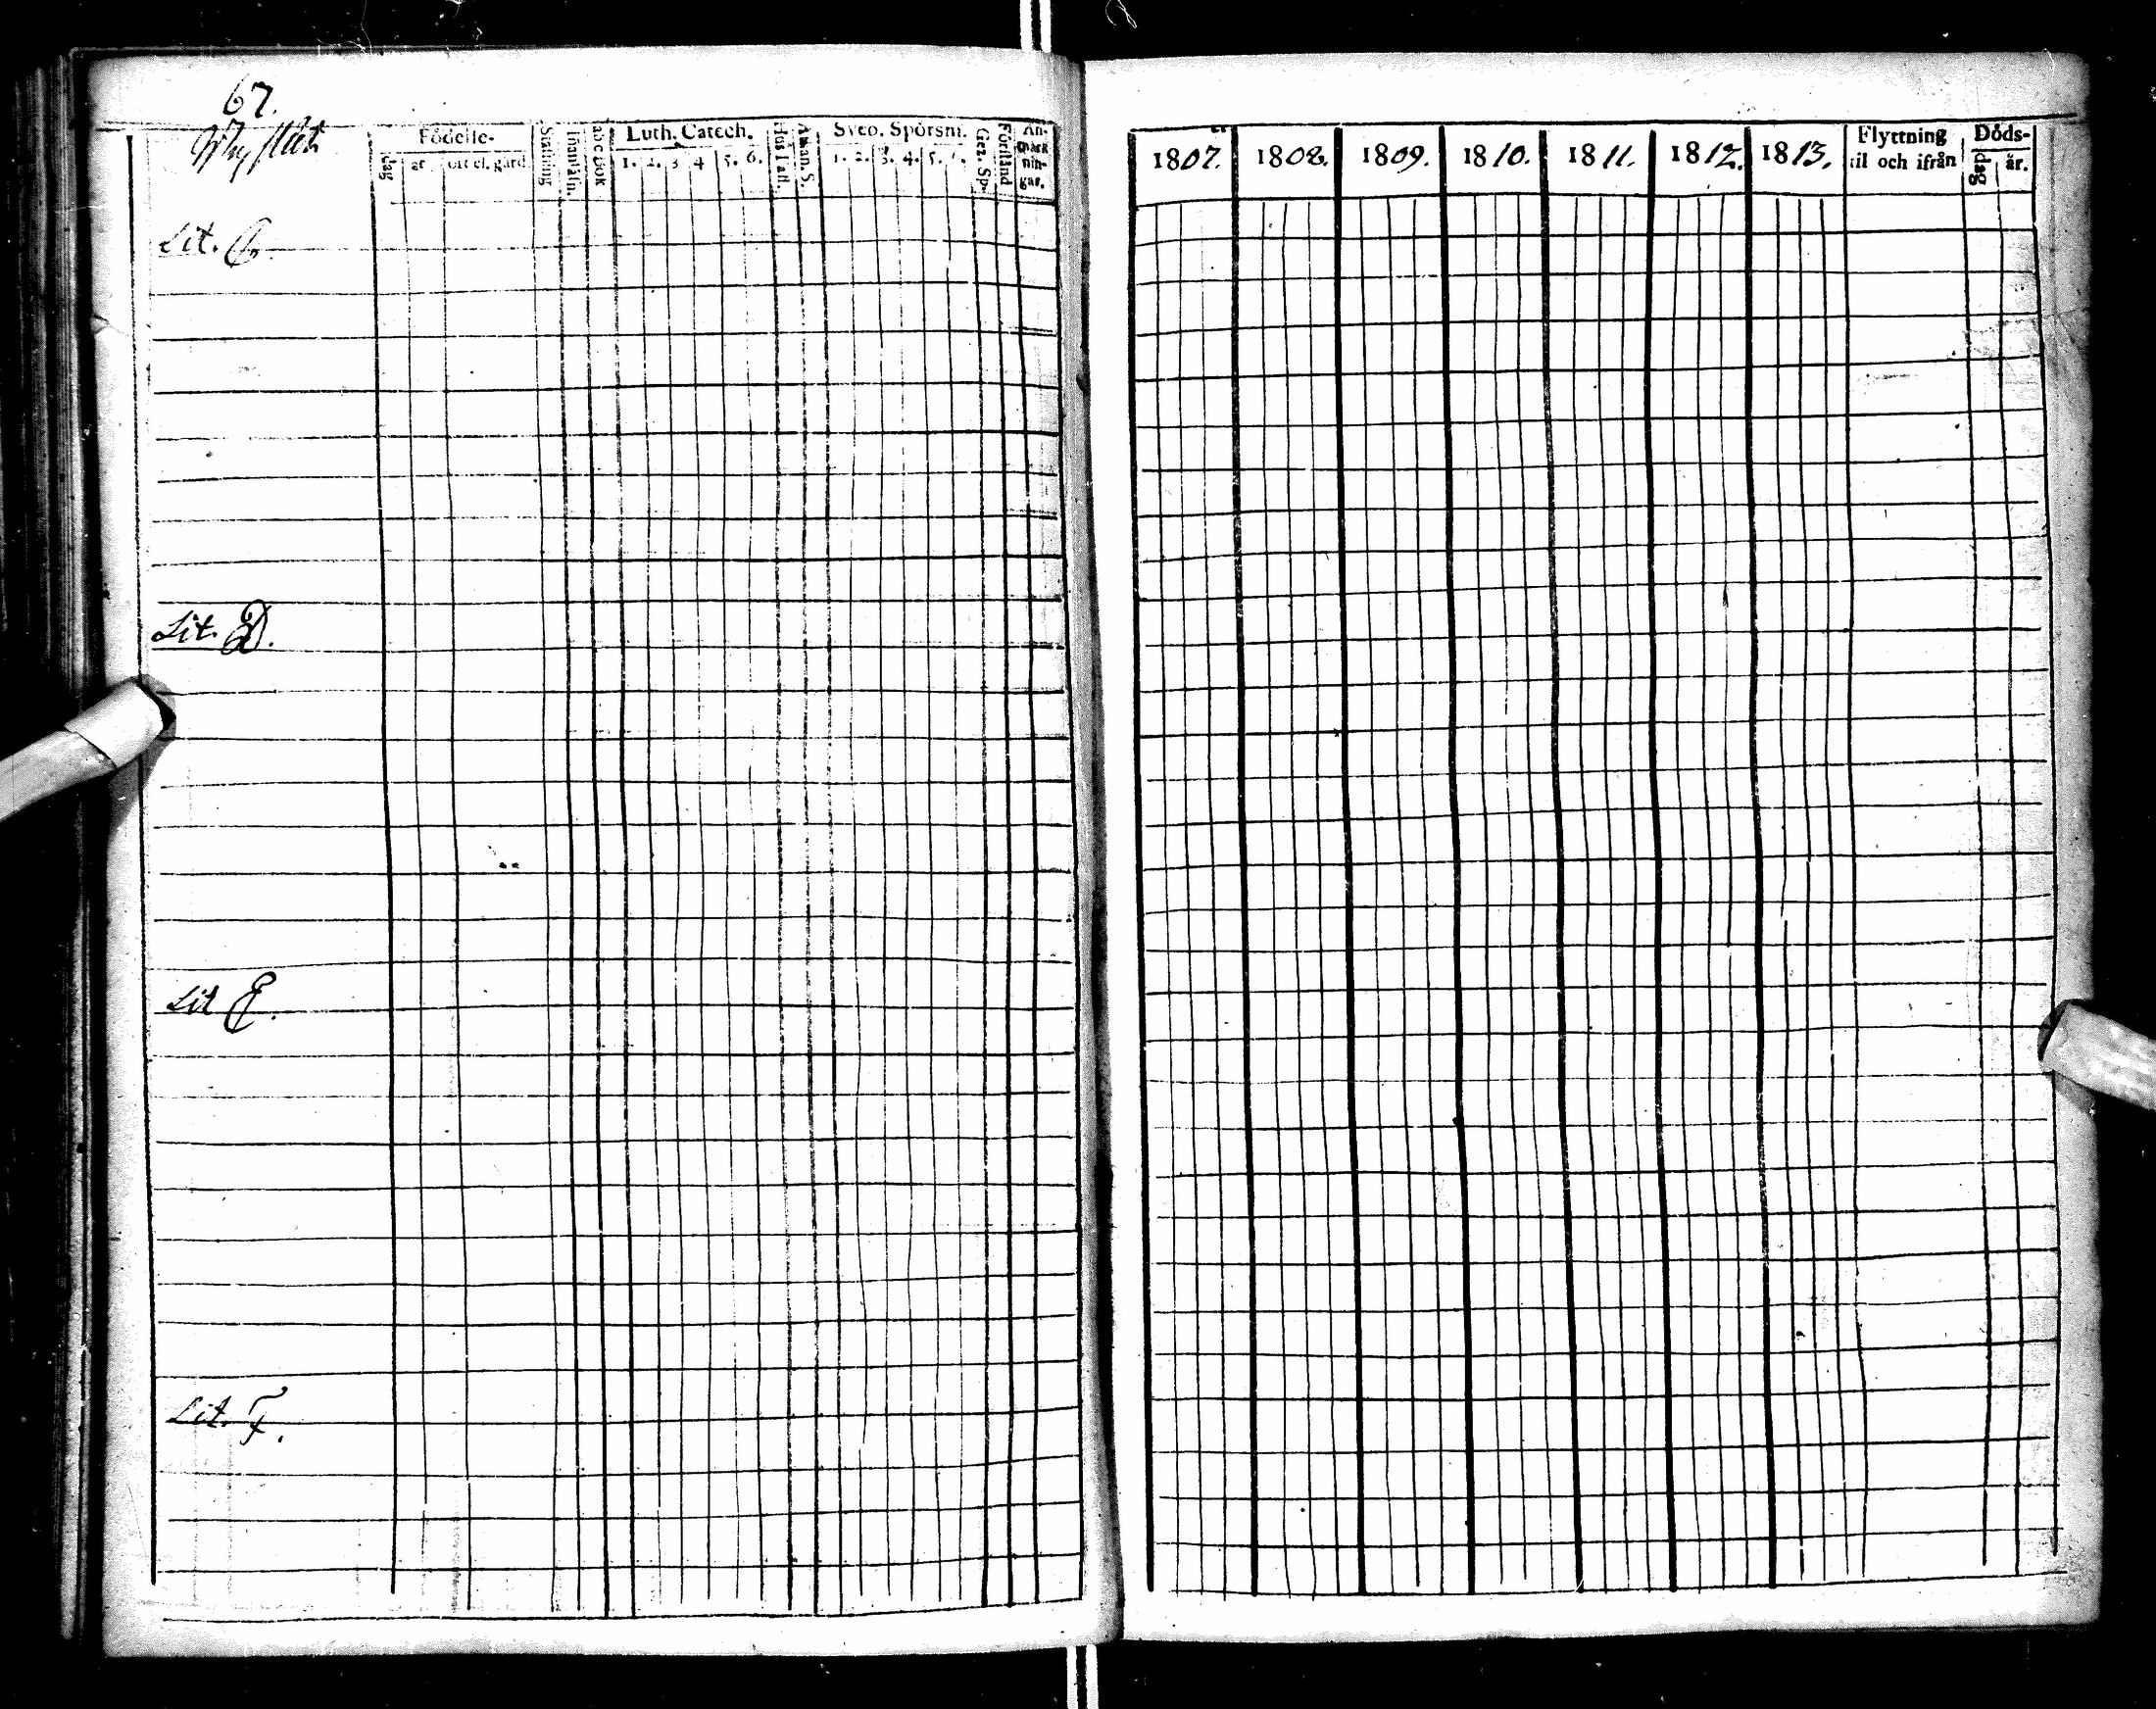 67.
Födelse-
Luth. Catech.
Sveo. Spörsm.
An-
märk
nin-
gar.
dag
år
ort el. gård.
Ställning
Innanläsn.
abc bok
1. 2. 3 4 5. 6.
Hus Tafl.
Athan. S.
1. 2. 3. 4. 5.
Gez. Sp.
Förstånd
Lit. C.
Lit. D.
Lit E.
Lit. F.
1807. 1808. 1809. 1810. 1811. 1812. 1813.
Flyttning
til och ifrån
Döds-
dag
år.